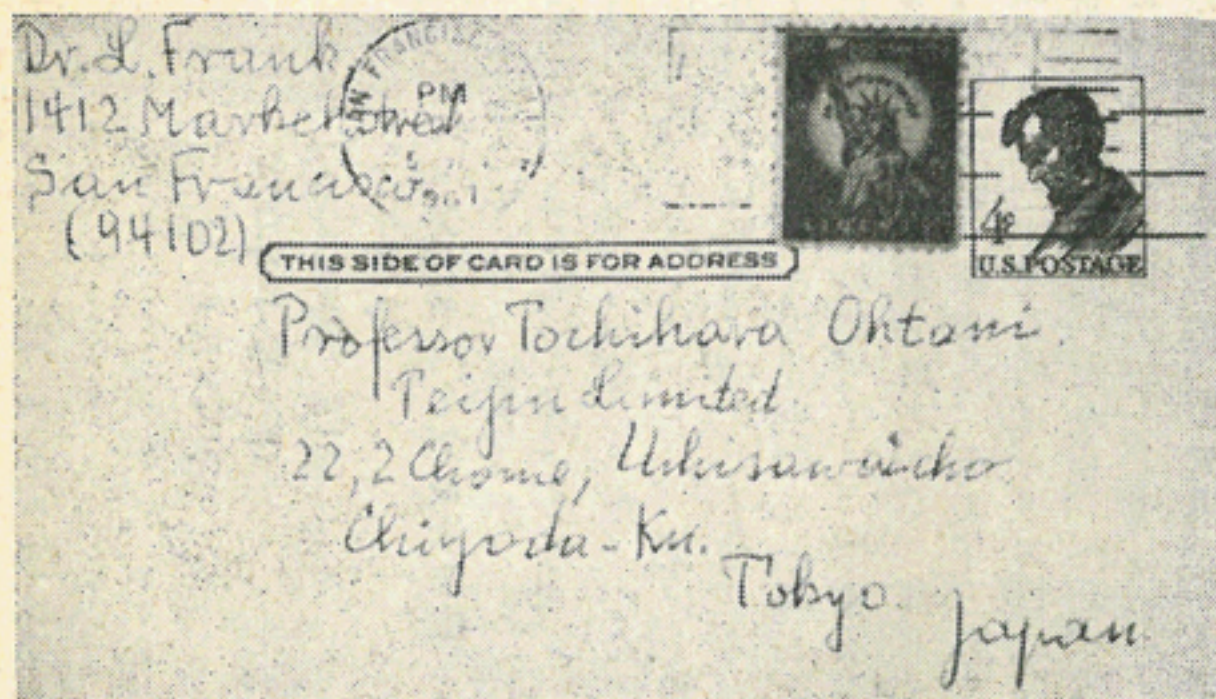 Dr. L. Frank
1412 Market Street
San Francisco
(94102)
SAN FRANCISC
PM
4c
U.S. POSTAGE
THIS SIDE OF CARD IS FOR ADDRESS
Professor Tochihara Ohtani.
Teijin Limited.
22, 2 Chome, Uchisawaicho
Chiyoda-Ku.
Tokyo
Japan